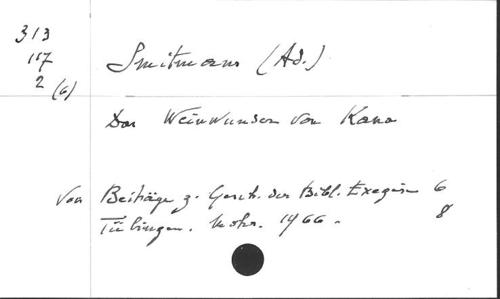 313
157
2 (6)
Smitmans (Ad.)
Das Weinwunder von Kana
Von Beiträge z. Gesch. der Bibl. Exegese 6
Tübingen. Mohr. 1966. 8